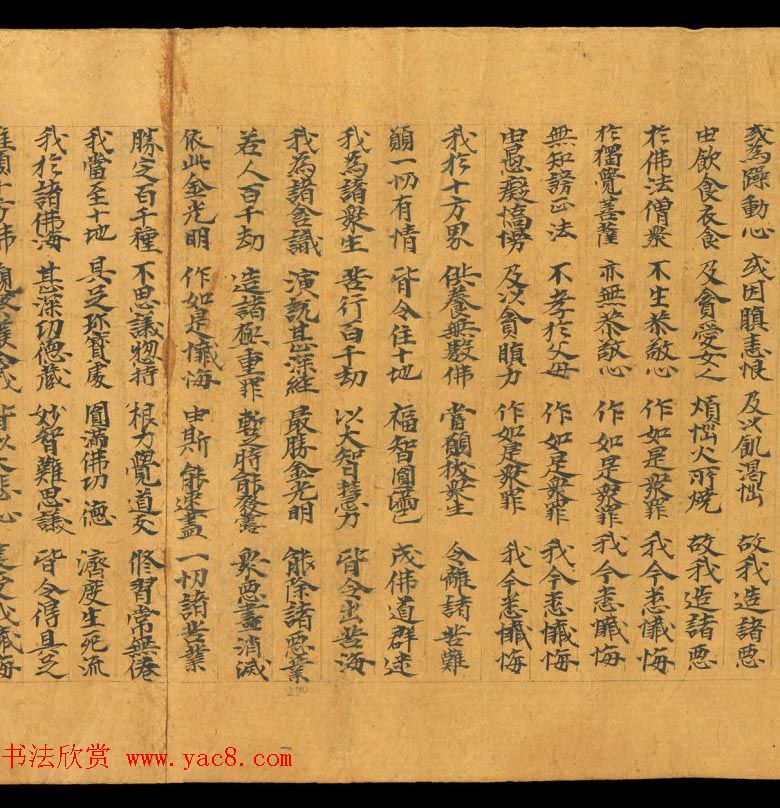 或為躁動心 或因瞋恚恨 及以飢渴惱 故我造諸惡
由飲食衣食 及貪愛女人 煩惱火所燒 故我造諸惡
於佛法僧衆 不生恭敬心 作如是衆罪 我今悉懺悔
於獨覺菩薩 亦無恭敬心 作如是衆罪 我今悉懺悔
無知謗正法 不孝於父母 作如是衆罪 我今悉懺悔
由愚癡憍慢 及以貪瞋力 作如是衆罪 我今悉懺悔
我於十方界 供養無數佛 當願拔衆生 令離諸苦難
願一切有情 皆令住十地 福智圓滿已 成佛道群迷
我為諸衆生 苦行百千劫 以大智慧力 皆令出苦海
我為諸含識 演說甚深經 最勝金光明 能除諸惡業
若人百千劫 造諸極重罪 暫時能發露 衆惡盡消滅
依此金光明 作如是懺悔 由斯能速盡 一切諸苦業
勝定百千種 不思議惣持 根力覺道支 修習常無倦
我當至十地 具足珎寶處 圓滿佛功德 濟度生死流
我於諸佛海 甚深功德藏 妙智難思議 皆令得具足
唯願十方佛 觀 護 我 皆以大悲心 哀受我懺悔
书法欣赏 www.yac8.com